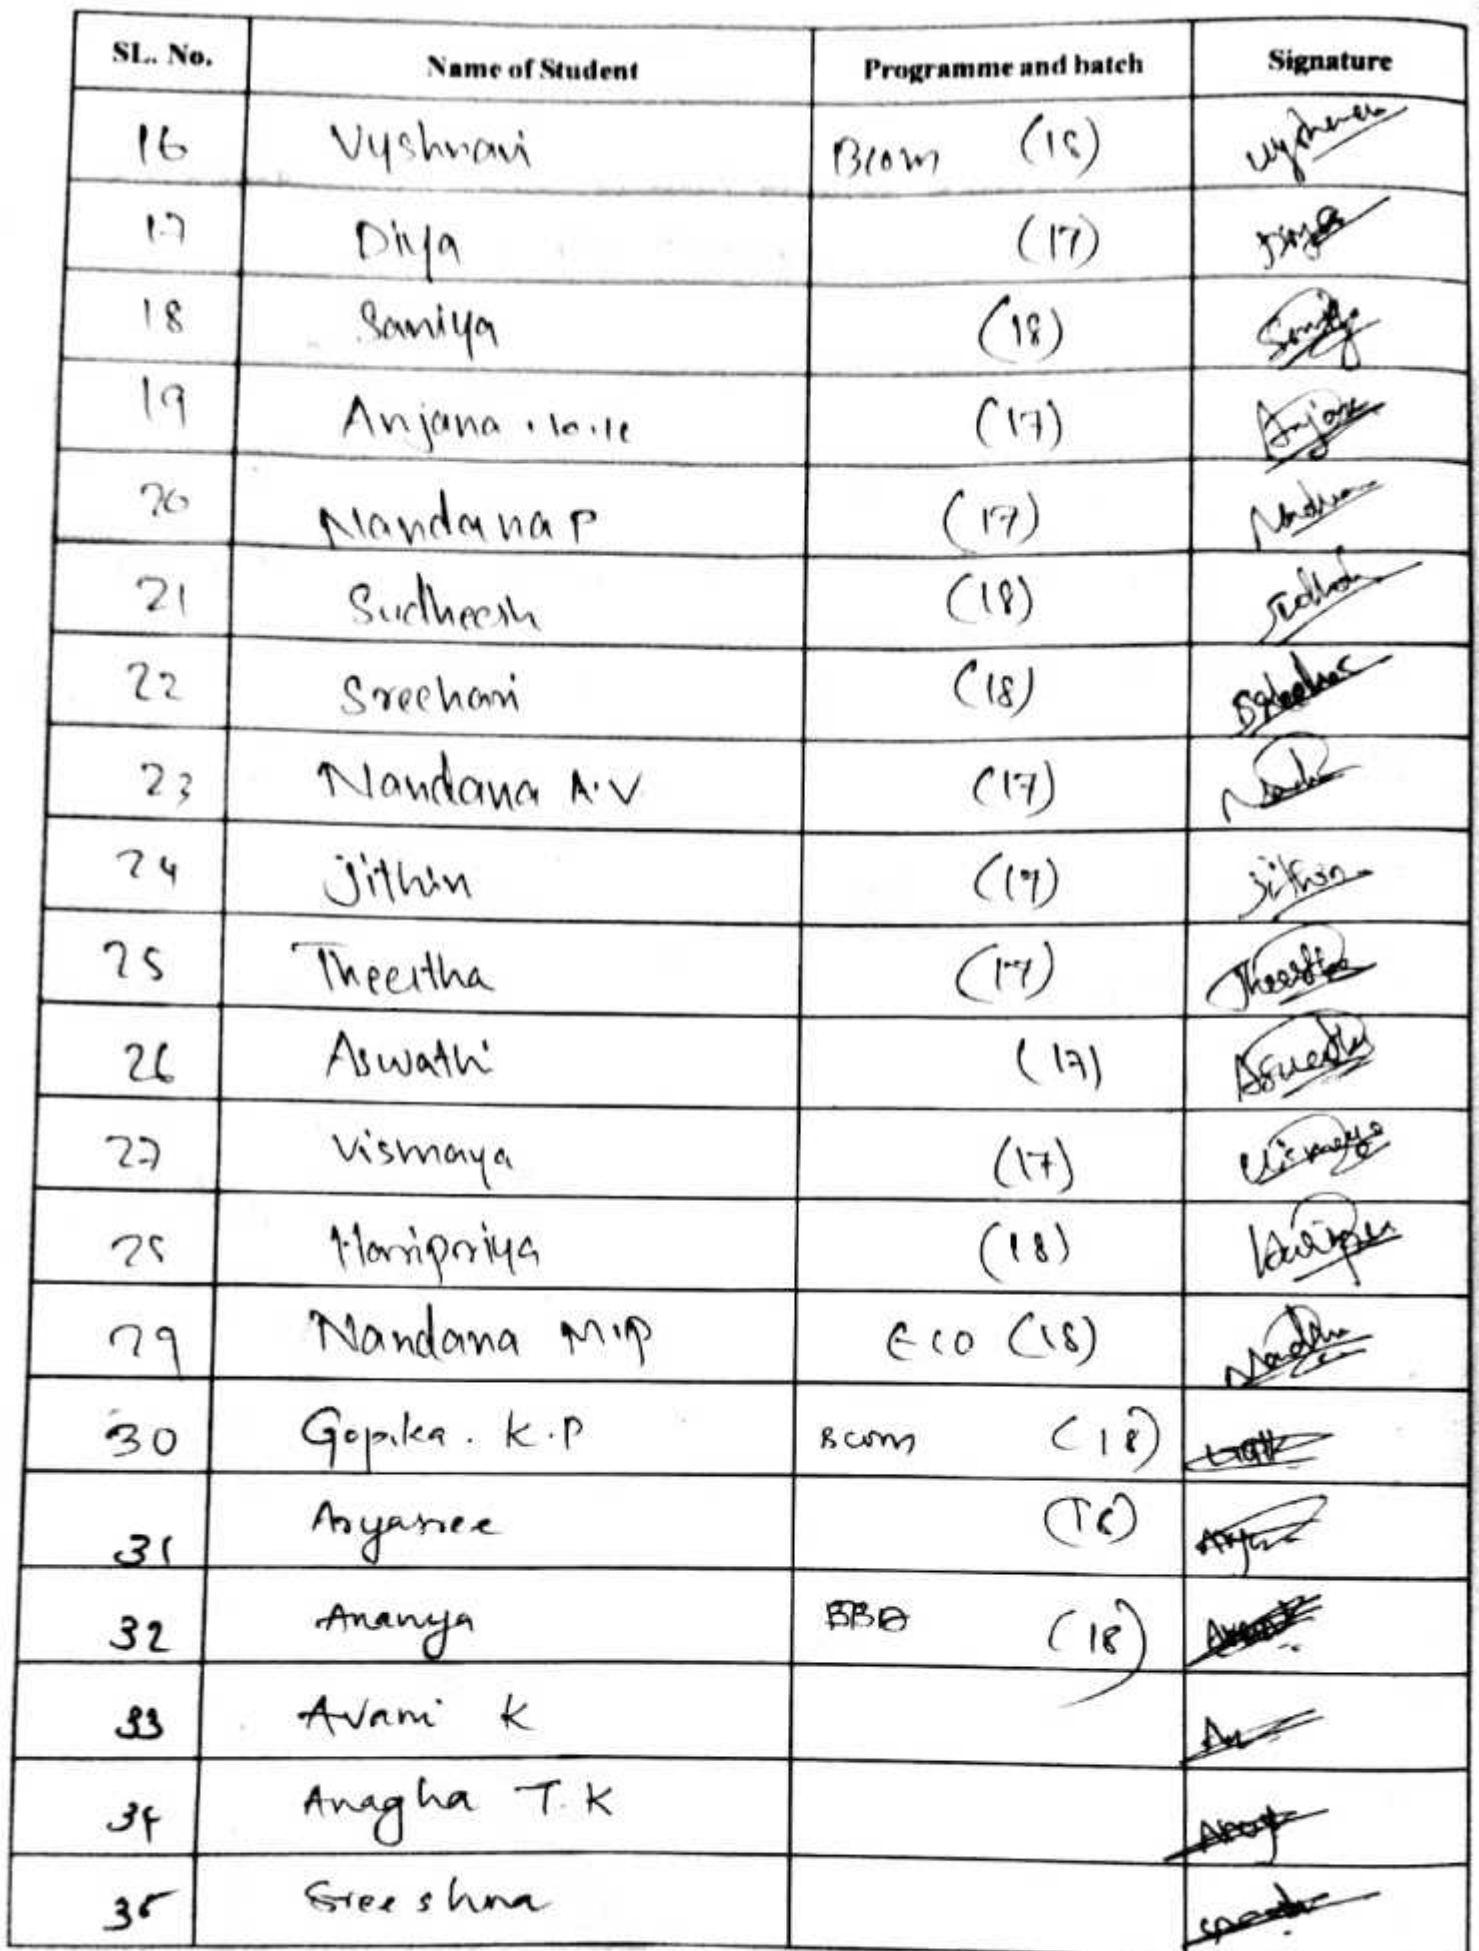 SL. No. Name of Student Programme and batch Signature
16 Vyshnavi Bcom (18)
17 Diya (17)
18 Saniya (18) Saniya
19 Anjana (17) Anjana
20 Nandana P (17)
21 Sudheesh (18)
22 Sreehari (18)
23 Nandana A.V (17)
24 Jithin (17) Jithin
25 Theertha (17) Theertha
26 Aswathi (17) Aswathi
27 Vismaya (17) Vismaya
28 Haripriya (18)
29 Nandana M.P ECO (18)
30 Gopika. K.P Bcom (18)
31 Aryasree (18)
32 Ananya BBA (18)
33 Avani K
34 Anagha T.K
35 Sreeshna